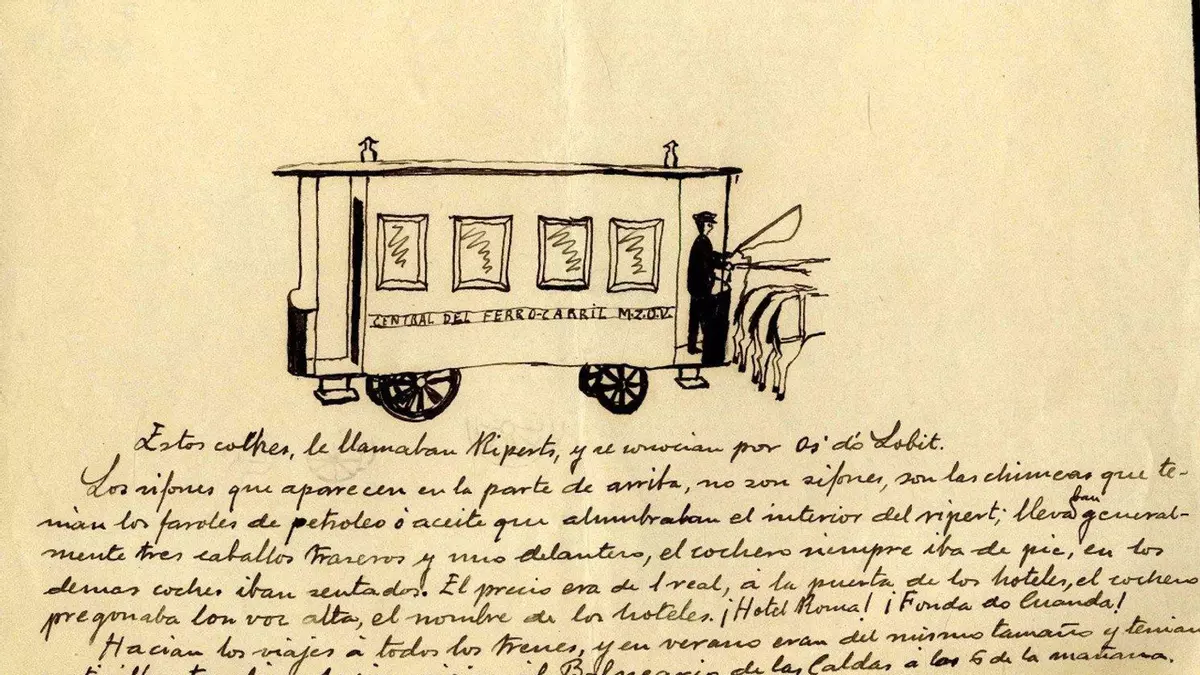 CENTRAL DEL FERRO-CARRIL M.Z.O.V.
Estos coches, le llamaban Riperts, y se conocian por Os dó Lobit.
Los sifones que aparecen en la parte de arriba, no son sifones, son las chimeas que te-
nian los faroles de petroleo ó aceite que alumbraban el interior del ripert; llevaban general-
mente tres caballos traseros y uno delantero, el cochero siempre iba de pie, en los
demas coches iban sentados. El precio era de 1 real, á la puerta de los hoteles, el cochero
pregonaba con voz alta, el nombre de los hoteles. ¡Hotel Roma! ¡Fonda do Cuanda!
Hacian los viajes á todos los trenes, y en verano eran del mismo tamaño y tenian
el Balneario de las Caldas á las 6 de la mañana.